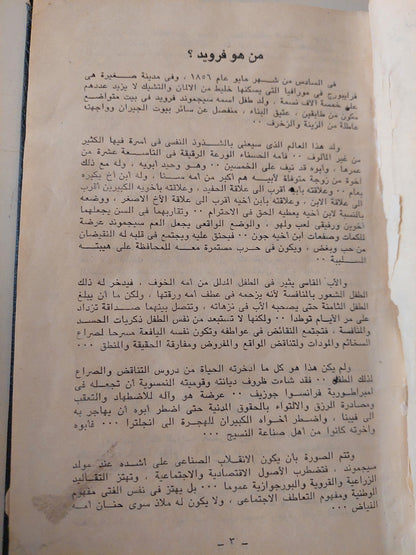 من هو فرويد ؟
فى السادس من شهر مايو عام ١٨٥٦ ، وفى مدينة صغيرة هى
فرايبورج فى مورافيا التى يسكنها خليط من الالمان والتشيك لا يزيد عددهم
على خمسة آلاف نسمة ، ولد طفل اسمه سيجموند فرويد فى بيت متواضع
مكون من طابقين ، عتيق البناء ، منفصل عن سائر بيوت الجيران وواجهته
عاطلة من الزينة والزخرف ٠٠
ولد هذا العالم الذى سيعنى بالشذوذ النفسى فى أسرة فيها الكثير
من غير المألوف ٠٠ فأمه الحسناء الورعة الرقيقة فى التاسعة عشرة من
عمرها ، وأبوه قد نيف على الخمسين ٠٠ وهو وحيد ابويه ، وله مع ذلك
أخوة من زوجة متوفاة لأبيه هم اكبر من أمه سنا ، وله ابن أخ يكبره
بعام ٠٠ وعلاقته بأبيه أقرب الى علاقة الحفيد ، وعلاقته بأخويه الكبيرين أقرب
الى علاقة الابن ، وعلاقته بابن أخيه أقرب الى علاقة الأخ الأصغر ، ووضعه
بالنسبة لابن أخيه يعطيه الحق فى الاحترام ٠٠ وتقاربهما فى السن يجعلهما
أخوين ورفيقى لعب ولهو ، والوضع الواقعى يجعل العم سيجموند عرضة
للكمات وصفعات ابن أخيه جون ٠٠ فيحنق عليه ويجتمع فى قلبه له النقيضان
من حب وبغض ، ويكون فى حرب مستمرة معه للمحافظة على هيبته
السليبة ٠٠
والأب القاسى يثير فى الطفل المدلل من أمه الخوف ، فيدخر له ذلك
الطفل الشعور بالمنافسة لأنه يزحمه فى عطف أمه ورقتها ، ولكن ما أن يبلغ
الطفل الثامنة حتى يصحبه الأب فى نزهاته ، وتتصل بينهما صداقة تزداد
مر الأيام توطدا ٠٠ ولكنها لا تستبعد من نفس الطفل ذكريات الحسد
والمنافسة ، فتجتمع النقائض فى عواطفه وتكون نفسه اليافعة مسرحا لصراع
السخائم والمودات ولتناقض الواقع والمفروض ومفارقة الحقيقة والمنطق ٠٠٠
ولم يكن هذا هو كل ما ادخرته الحياة من دروس التناقض والصراع
لذلك الطفل ٠٠ فقد شاءت ظروف ديانته وقوميته النمسوية أن تجعله فى
امبراطورية فرانسوا جوزيف ٠٠ عرضة هو وآله للاضطهاد والتعقب
ومصادرة الرزق والالتواء بالحقوق المدنية حتى اضطر أبوه أن يهاجر به
الى فيينا ، واضطر أخواه الكبيران للهجرة الى انجلترا ٠٠٠ فأبوه
وأخوته كانوا من أهل صناعة النسيج ٠٠٠
وتتم الصورة بأن يكون الانقلاب الصناعى على أشده عند مولد
سيجموند ، فتضطرب الأصول الاقتصادية والاجتماعية ، وتهتز التقاليد
الزراعية والقروية والبورجوازية عموما ٠٠٠ بل يهتز فى نفس الفتى مفهوم
الوطنية ومفهوم التعاطف الاجتماعى ، ولا يكون له ملاذ سوى حنان أمه
الفياض ٠٠٠
ـ ٣ ـ